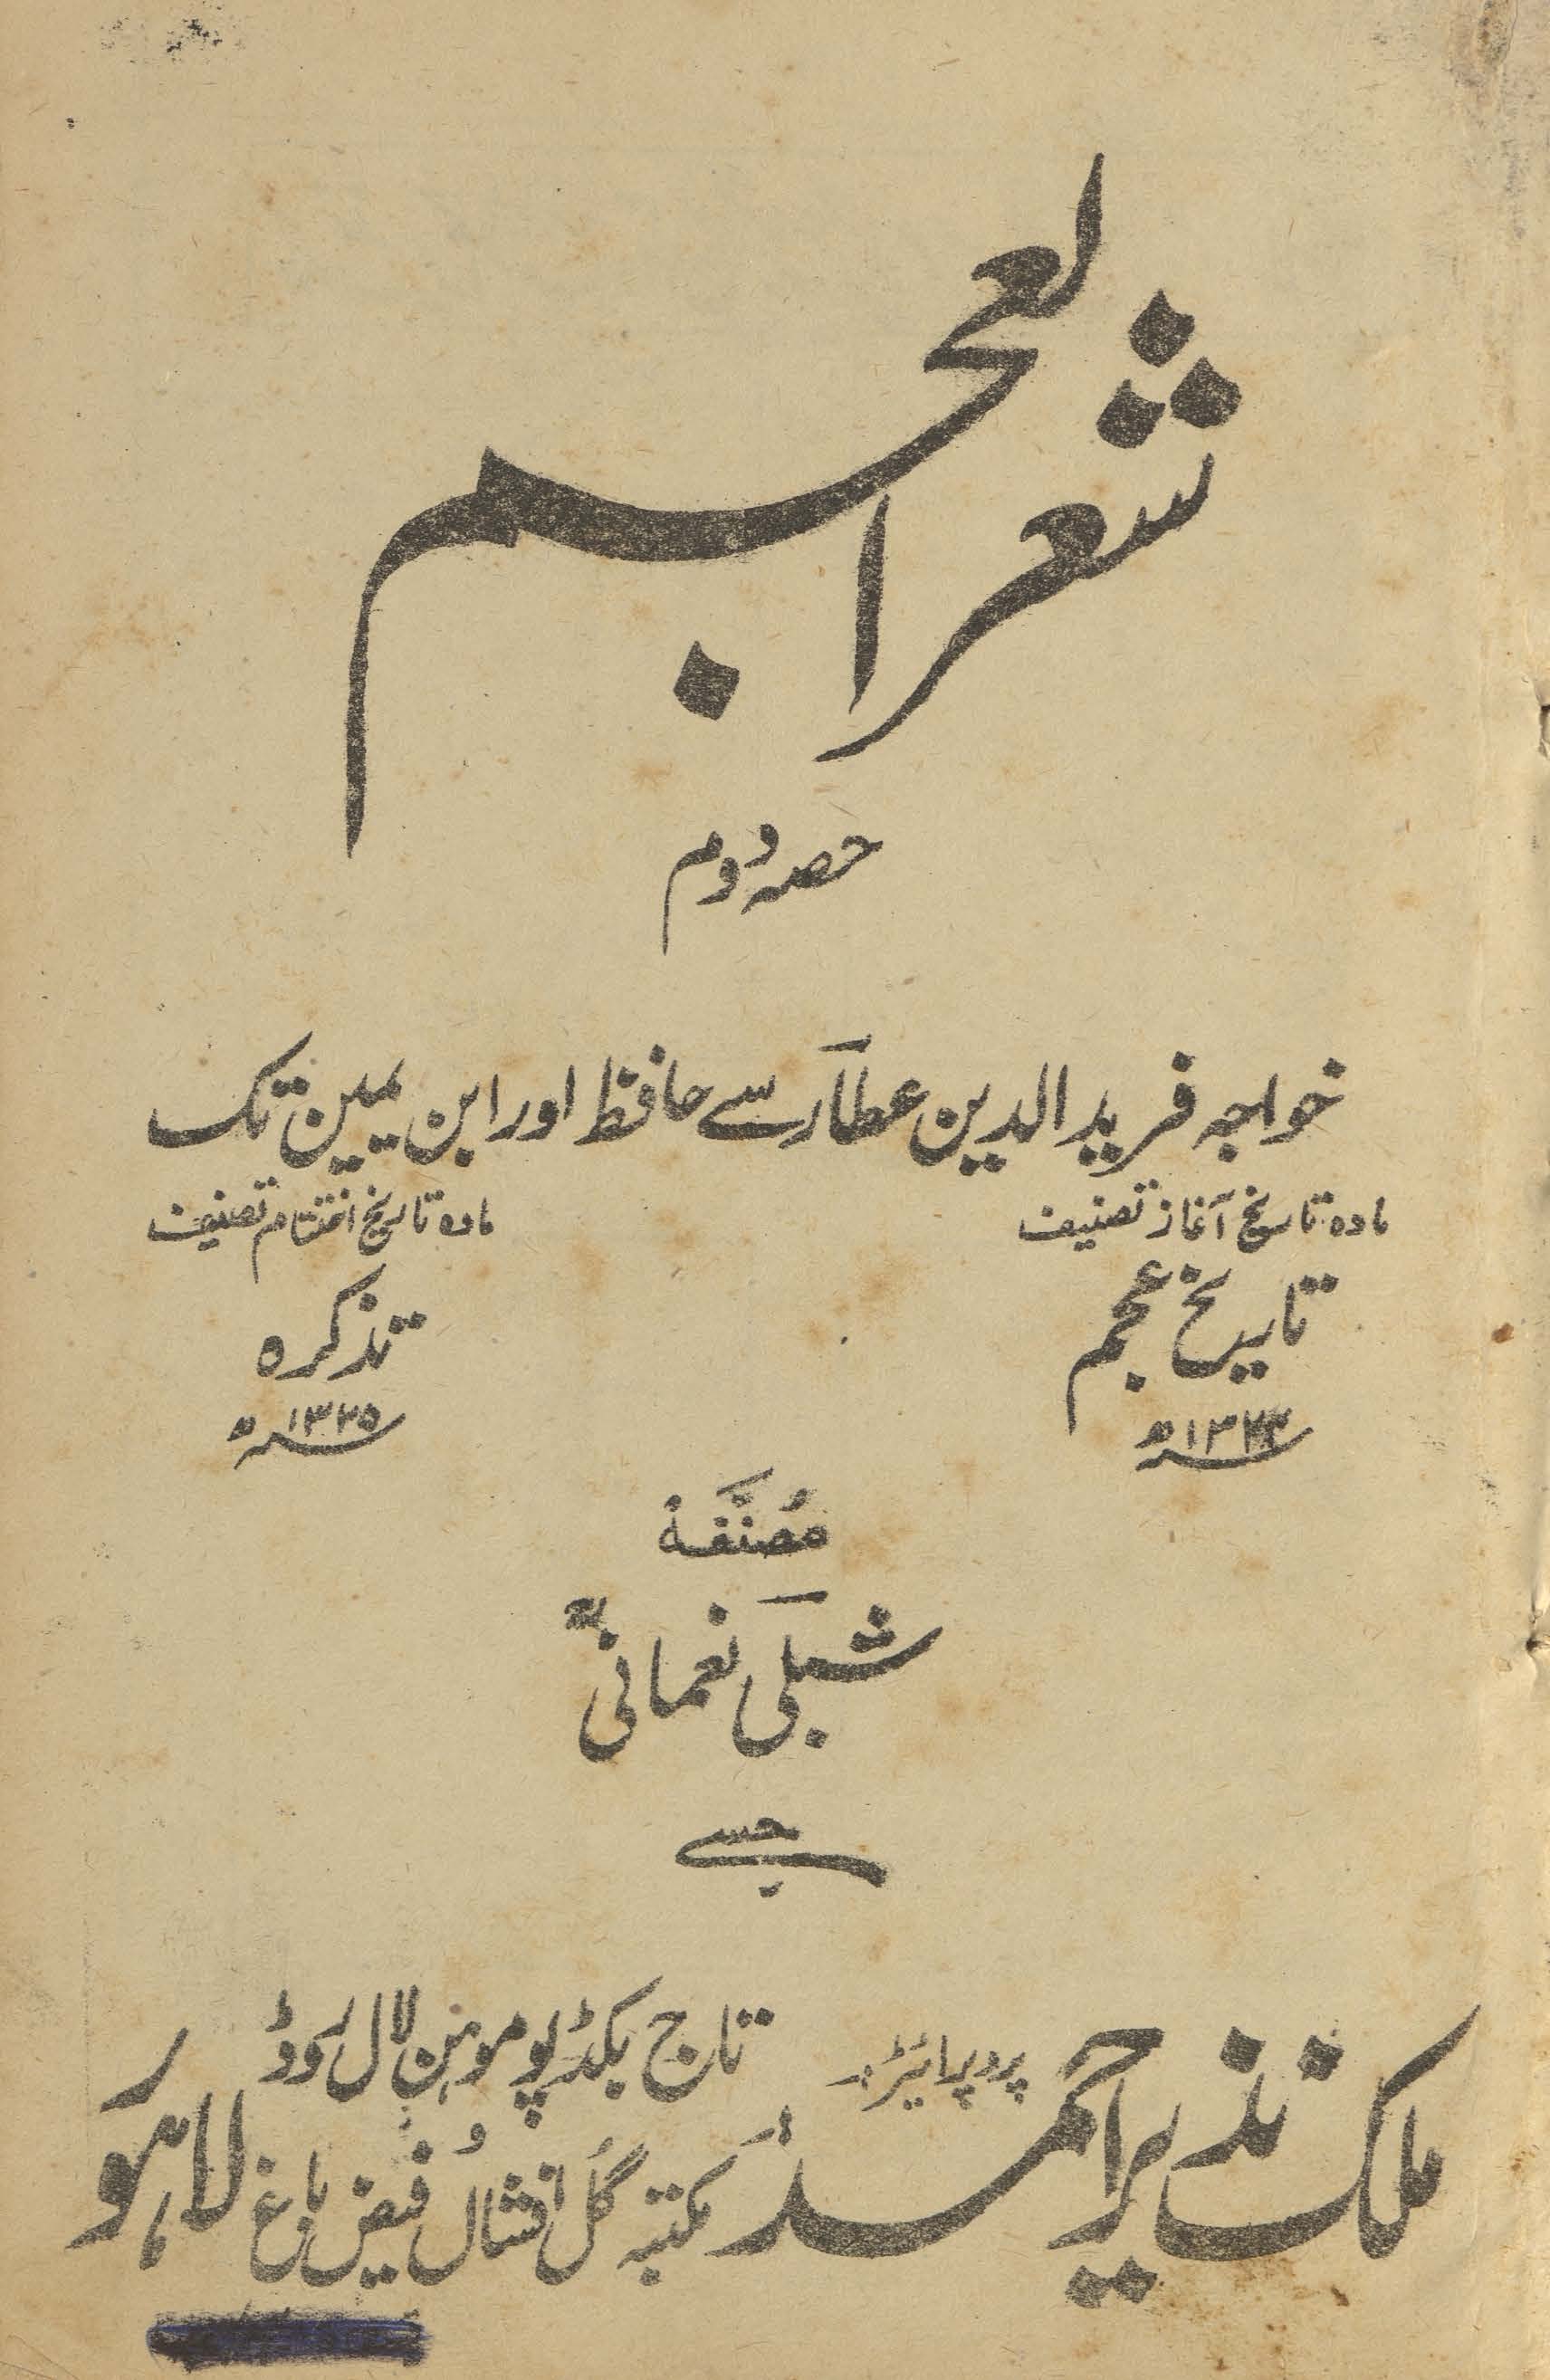 شعرالعجم
حصہ دوم
خواجہ فرید الدین عطار سے حافظ اور ابن یمین تک
مادہ تاریخ آغاز تصنیف
تاریخ عجم
۱۳۲۴ھ
مادہ تاریخ اختتام تصنیف
تذکرہ
۱۳۲۵ھ
مُصنَّفہ
شبلی نعمانیؒ
ملک نذیر احمد پروپرائیٹرز
تاج بکڈپو موہن لال روڈ
مکتبہ گُل افشاں فیض باغ لاہور